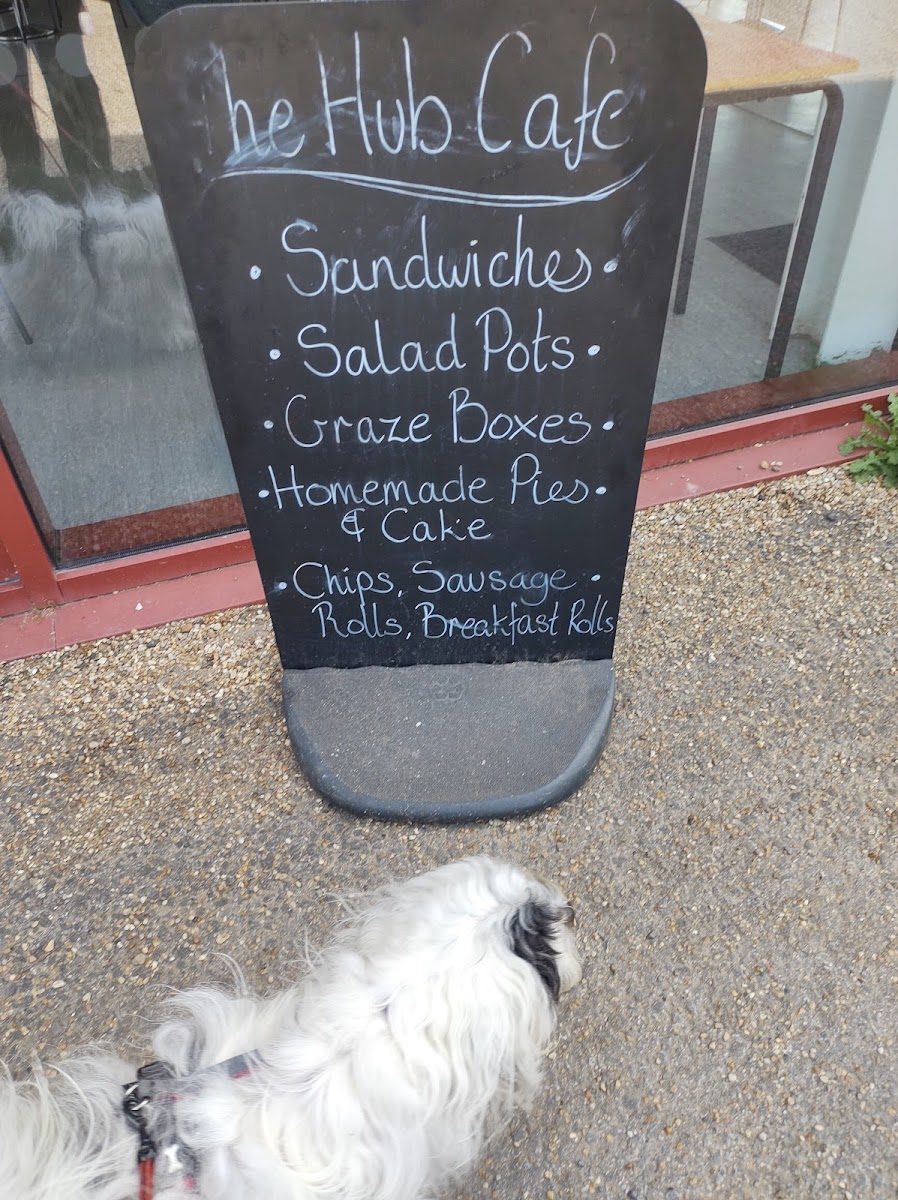 The Hub Cafe
• Sandwiches •
• Salad Pots •
• Graze Boxes •
• Homemade Pies •
& Cake
• Chips, Sausage •
Rolls, Breakfast Rolls